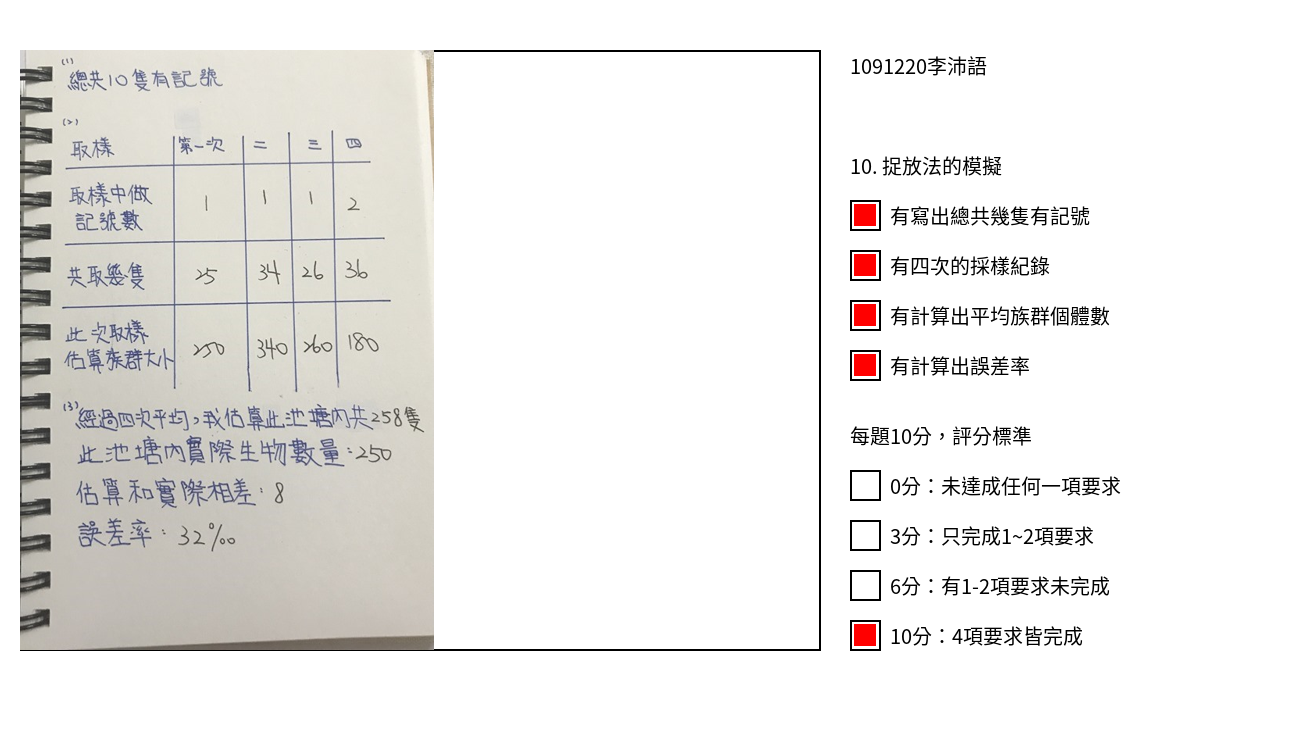 (1)
總共10隻有記號
(2)
取樣 第一次 二 三 四
取樣中做
記號數 1 1 1 2
共取幾隻 25 34 26 36
此次取樣
估算族群大小 250 340 260 180
(3)
經過四次平均，我估算此池塘內共258隻
此池塘內實際生物數量：250
估算和實際相差：8
誤差率：32‰
1091220李沛語
10. 捉放法的模擬
有寫出總共幾隻有記號
有四次的採樣紀錄
有計算出平均族群個體數
有計算出誤差率
每題10分，評分標準
0分：未達成任何一項要求
3分：只完成1~2項要求
6分：有1-2項要求未完成
10分：4項要求皆完成